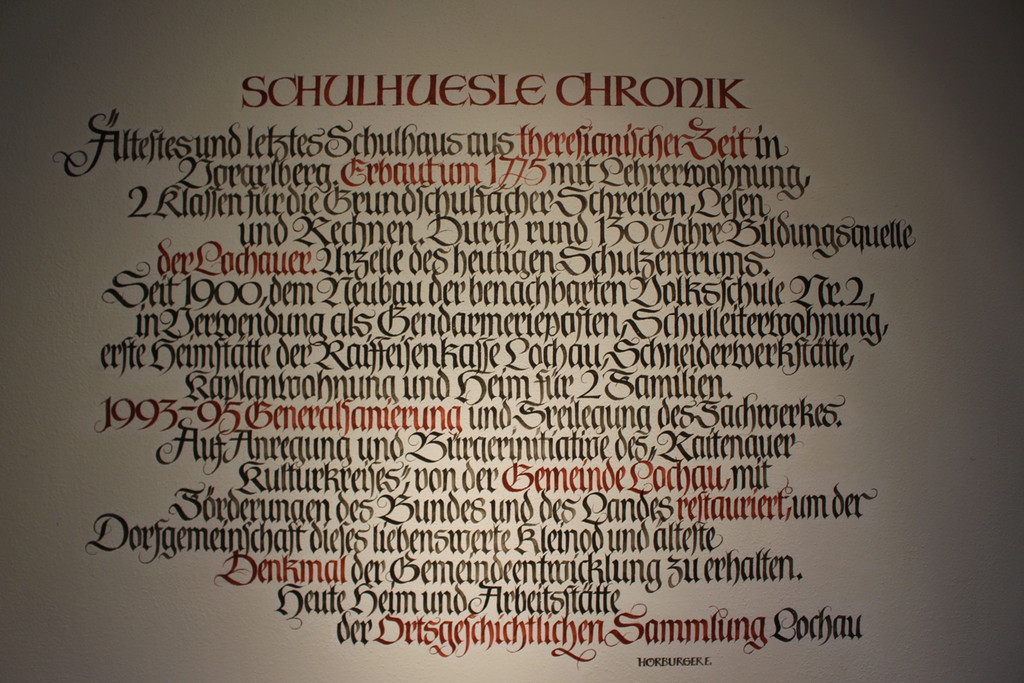 SCHULHUESLE CHRONIK
Ältestes und letztes Schulhaus aus theresianischer Zeit in
Vorarlberg. Erbaut um 1775 mit Lehrerwohnung,
2 Klassen für die Grundschulfächer Schreiben, Lesen
und Rechnen. Durch rund 130 Jahre Bildungsquelle
der Lochauer. Urzelle des heutigen Schulzentrums.
Seit 1900, dem Neubau der benachbarten Volksschule Nr. 2,
in Verwendung als Gendarmerieposten, Schulleiterwohnung,
erste Heimstätte der Raiffeisenkasse Lochau, Schneiderwerkstätte,
Kaplanwohnung und Heim für 2 Familien.
1993-95 Generalsanierung und Freilegung des Fachwerkes.
Auf Anregung und Bürgerinitiative des „Raitenauer
Kulturkreises“, von der Gemeinde Lochau, mit
Förderungen des Bundes und des Landes restauriert, um der
Dorfgemeinschaft dieses liebenswerte Kleinod und älteste
Denkmal der Gemeindeentwicklung zu erhalten.
Heute Heim und Arbeitsstätte
der Ortsgeschichtlichen Sammlung Lochau
HORBURGER E.